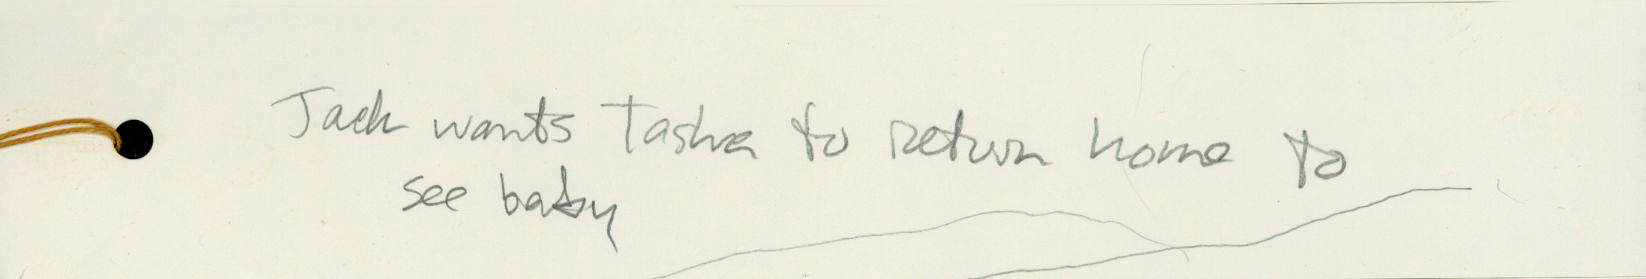 Jack wants Tasha to return home to
see baby